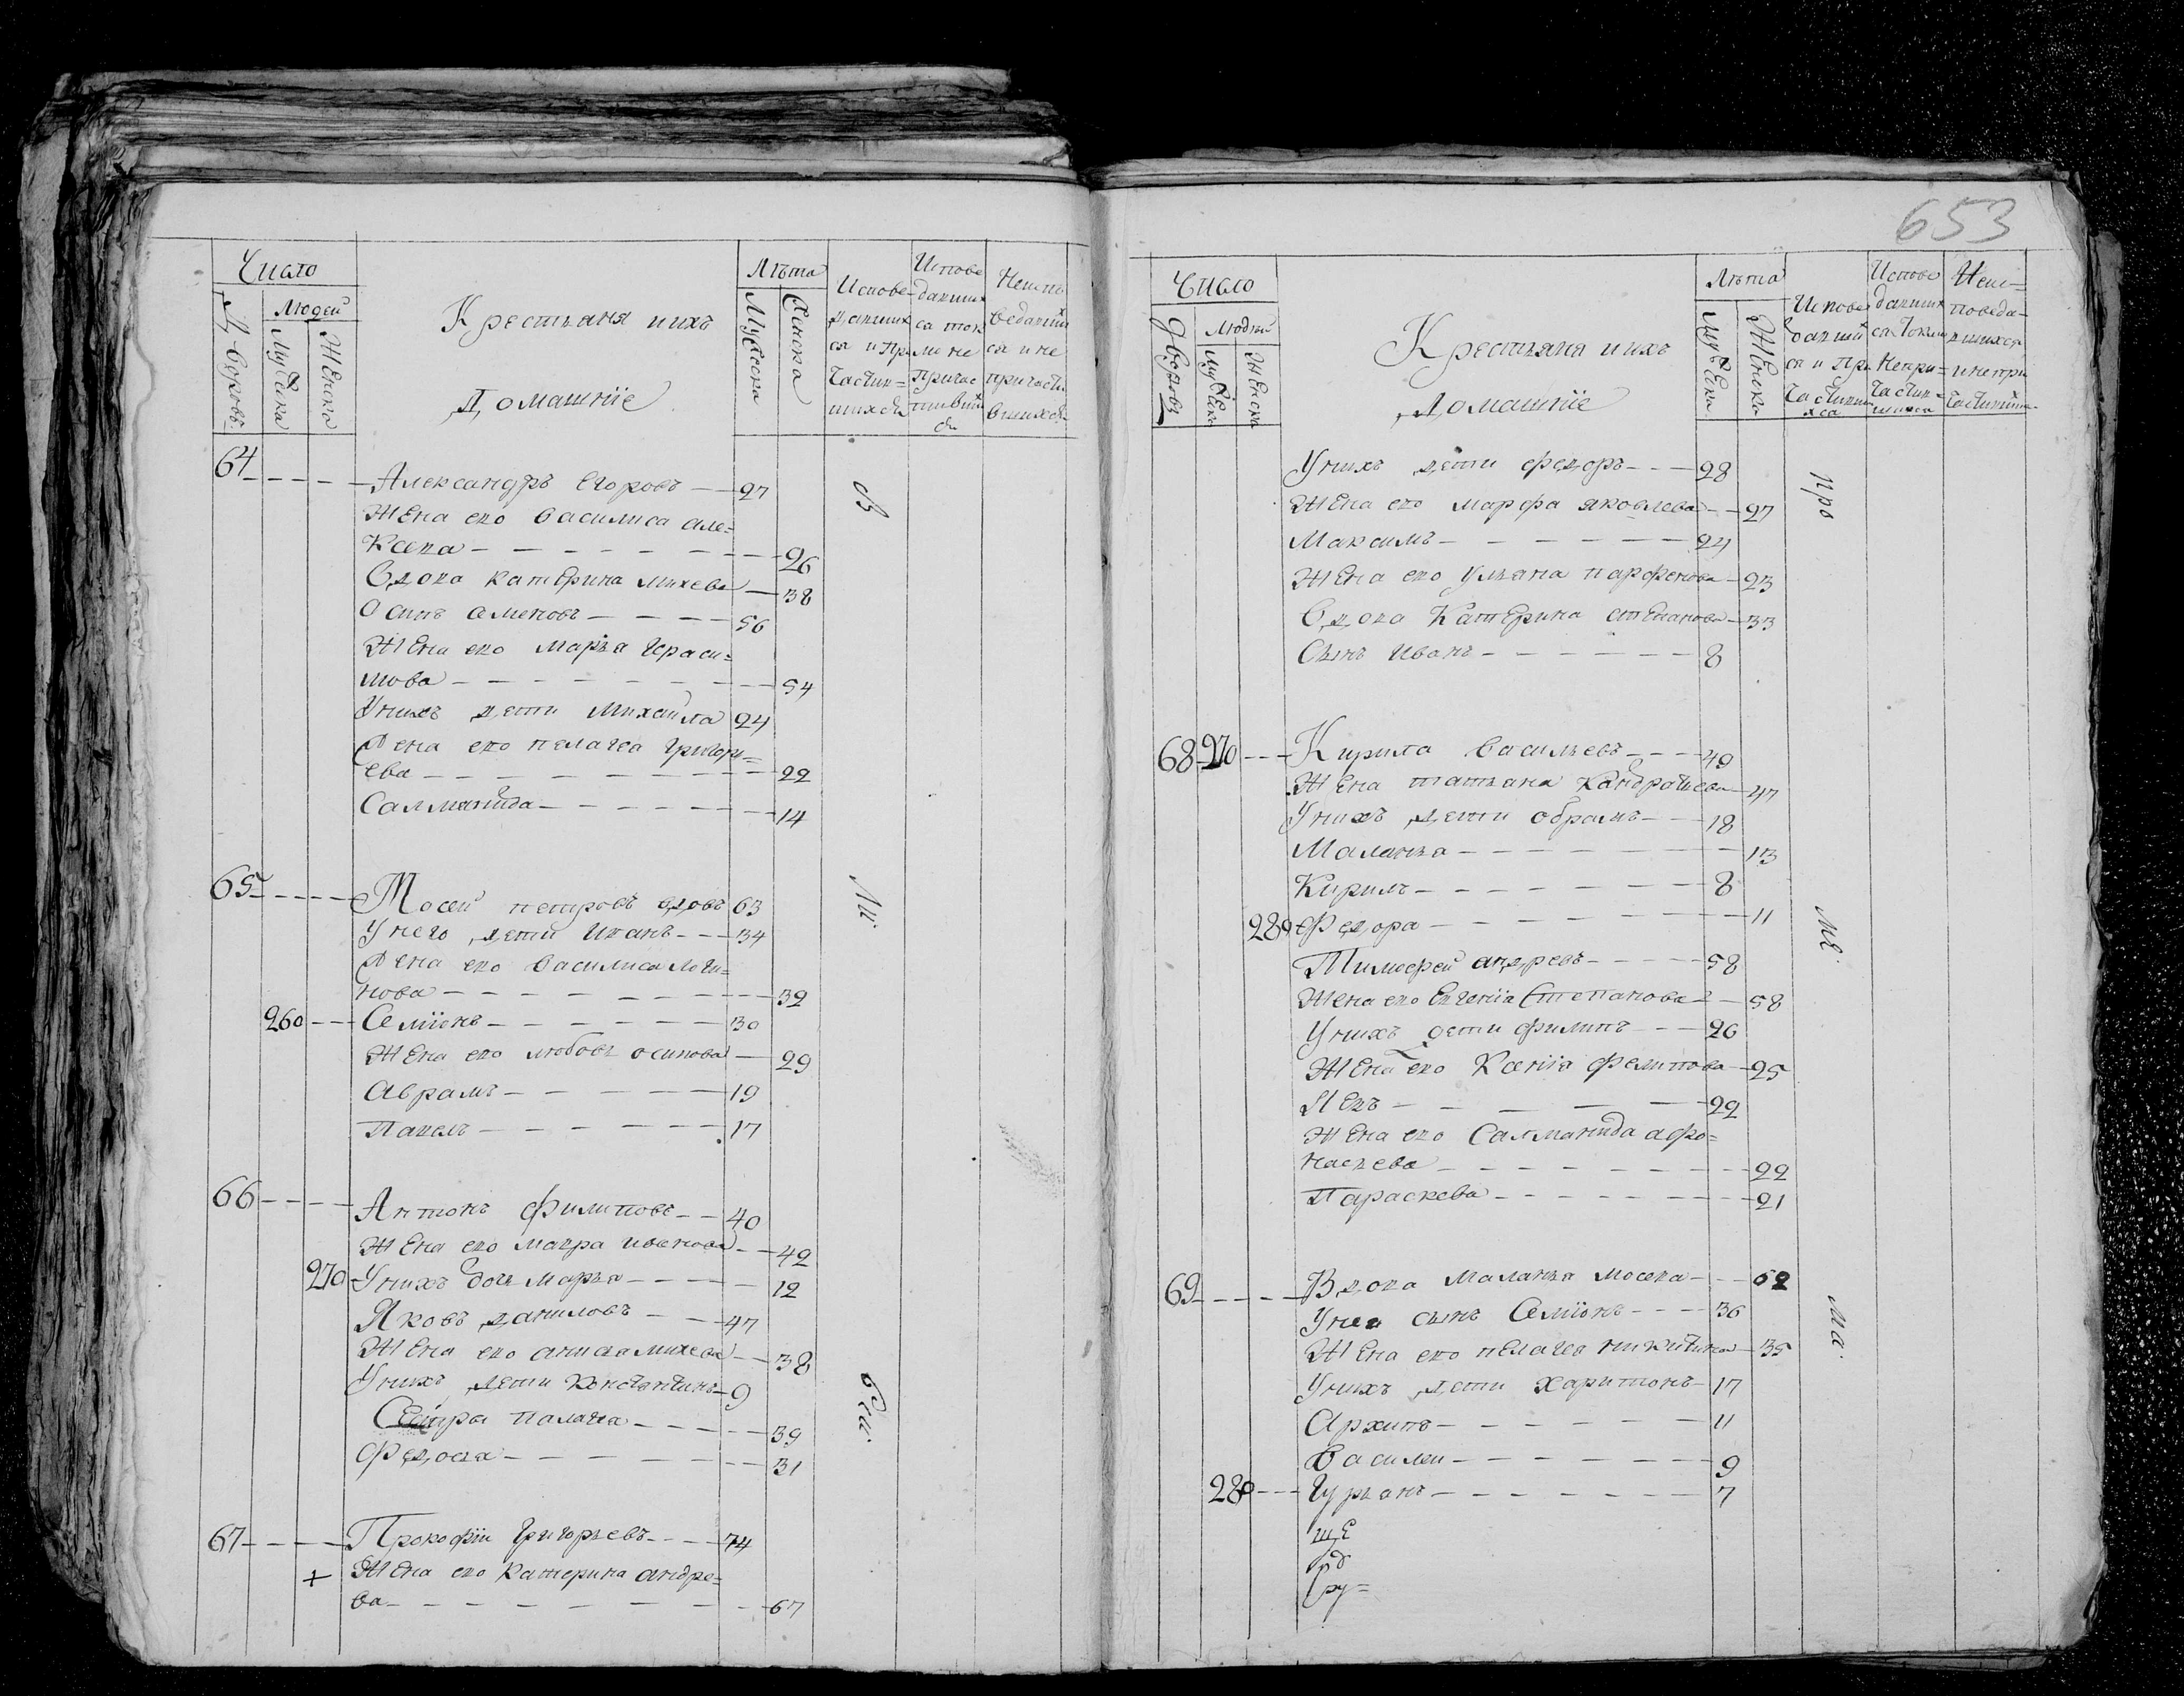 Число
Людей
Дворовъ
Мужеска
Женска
Крестьяня и ихъ
Домашнїе
Лѣта
Мужеска
Женска
Испове-
давших
ся и При
частив=
шихся
Испове
давших
ся ток
мо не
Причас
тивших
ся
Неиспо
ведавших
ся и не
причасти
вшихся
64
Александръ Егоровъ 27
Жена ево василиса але=
ксева 26
Вдова катерина михева 38
Осипъ семеновъ 56
Жена ево Марья Гераси=
мова 54
Унихъ дети Михаила 24
Жена ево пелагея григорь=
ева 22
Саламанида 14
65
Мосей петровъ вдовъ 63
У него дети Иванъ 34
Жена ево василиса логи=
нова 32
260 Семïонъ 30
Жена ево любовь осипова 29
Аврамъ 19
Павелъ 17
66
Антонъ Филиповъ 40
Жена ево мавра иванова 42
270 Унихъ дочь Марья 12
Яковъ даниловъ 47
Жена ево анисья михева 38
Унихъ дети Константинъ 9
Сестры палагея 39
Федосья 31
67
Прокофïи Григорьевъ 74
+ Жена ево катерина андре=
ва 67
св
ли.
бли.
653
Число
Дворовъ
Людей
Мужеска
Женска
Крестьяня и ихъ
Домашнїе
Лѣта
Мужеска
Женска
Испове
давших
ся и При
частивши
хся
Испове
давших
ся токмо
Непри=
частив=
шихся
Неис=
поведа-
вшихся
и непри
частивших
Унихъ дети федоръ 28
Жена ево марфа яковлева 27
Максимъ 24
Жена ево ульяна парфенова 23
Вдова Катерина степанова 33
Сынъ Иванъ 8
68 270 Кирила васильевъ 49
Жена татьяна Кандратьева 47
Унихъ дети обрамъ 18
Маланья 13
Кирилъ 8
280 Федора 11
Тимофей андревъ 58
Жена ево Евгенïя Степанова 58
Унихъ дети филипъ 26
Жена ево Ксенïя фелипова 25
Левъ 22
Жена ево Саламанида афо=
насьева 22
Параскева 21
69
Вдова маланья мосева 62
Унея сынъ Семïонъ 36
Жена ево пелагея никитина 35
Унихъ дети харитонъ 17
Архипъ 11
Василеи 9
280 Гурьянъ 7
ще
рд
ру=
про
ме.
ма.